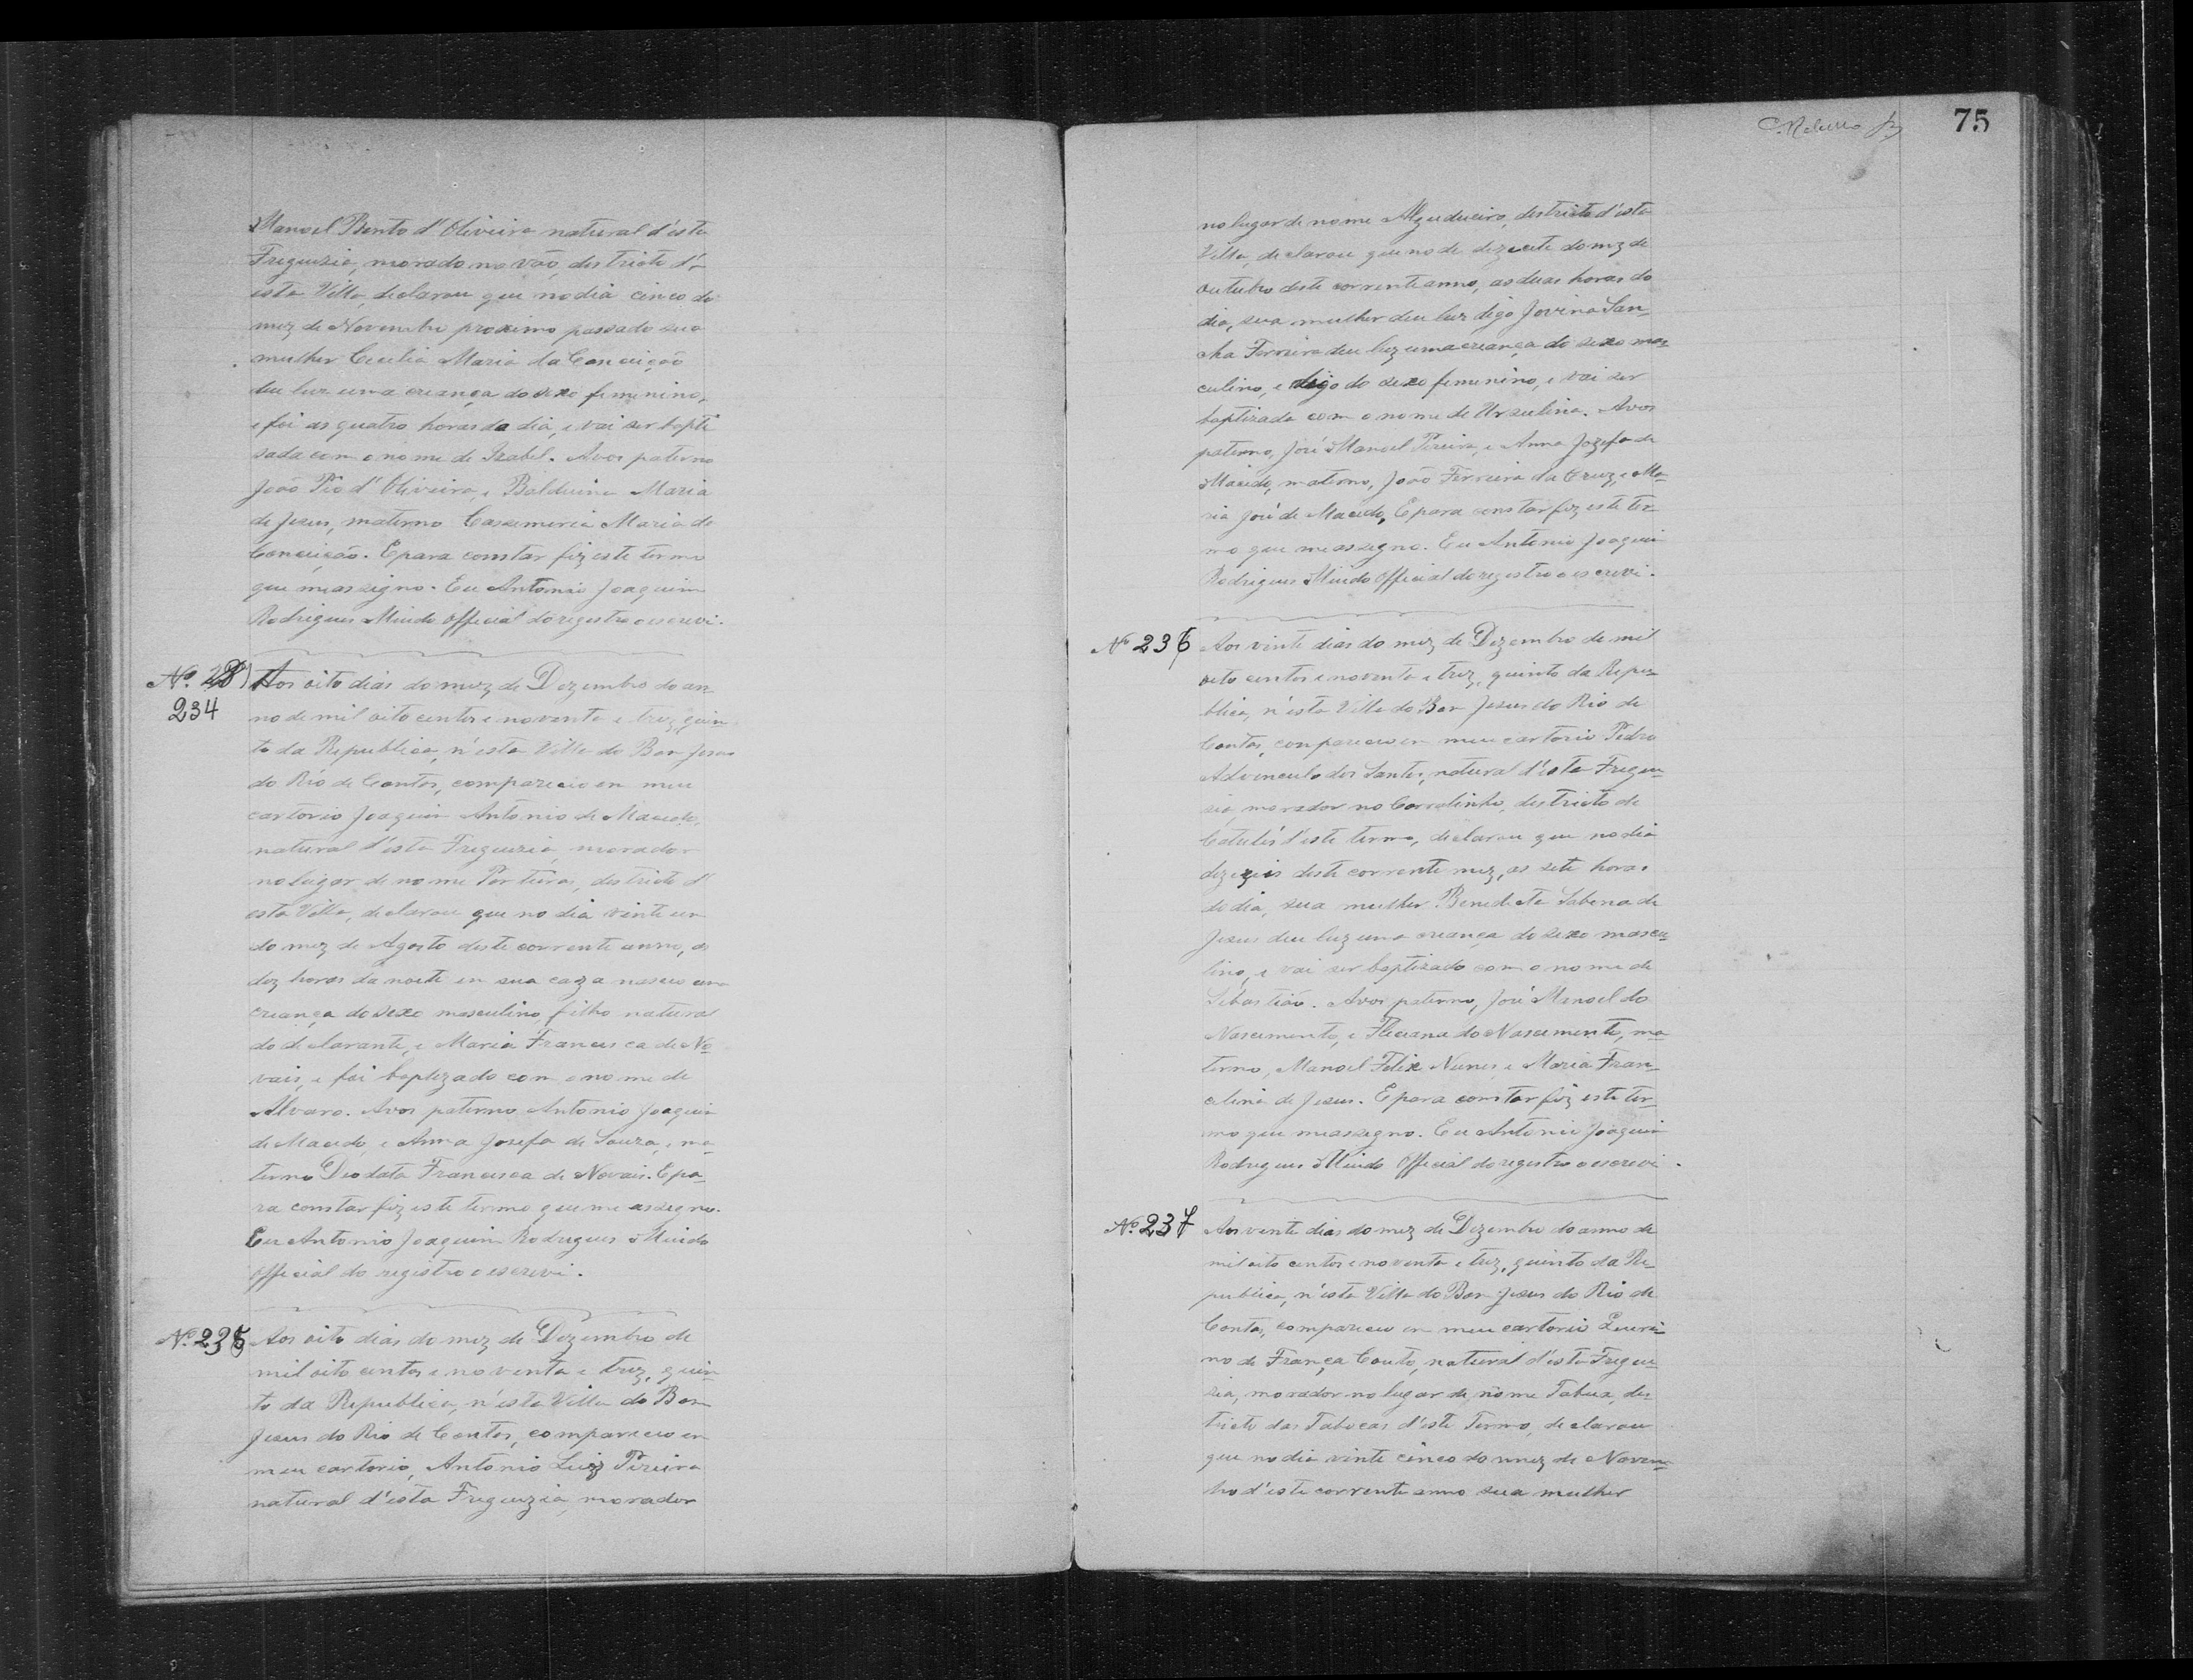 Manoel Bento d'Oliveira natural d'esta
Freguizia, morado no vão, destricto d'-
esta Villa declarou que no dia cinco do
mez de Novembro proximo passado sua
mulher Cecilia Maria da Conceição
deu luz uma creança do sexo feminino,
e foi as quatro horas da dia, e vai ser bapti
sada com o nome de Izabel. Avos paterno
João Pio d'Oliveira, e Balduina Maria
de Jesus, materno Casemeria Maria da
Conceição. E para constar fiz este termo
que me assigno. Eu Antonio Joaquim
Rodrigues official do registro o escrevi.
Nº. 234
Aos oito dias do mez de Dezembro do an-
no de mil oito centos e noventa e trez, quin-
to da Republica, n'esta Villa do Bom Jesus
do Rio de Contas, compareceo em meu
cartorio Joaquim Antonio de Macedo,
natural d'esta Freguizia, morador
no lugar de nome Porteiras, destricto d'
esta Villa, declarou que no dia vinte um
do mez de Agosto deste corrente anno, as
dez horas da noite em sua caza nasceo uma
creança do sexo masculino, filho natural
do declarante, e Maria Francisca de No-
vais, e foi baptizado com o nome de
Alvaro. Avos paterno Antonio Joaquim
de Macedo, e Anna Josefa de Souza, ma-
terno Deodata Francisca de Novais. E pa-
ra constar fiz este termo que me assigno.
Eu Antonio Joaquim Rodrigues
official do registro o escrevi.
Nº. 235
Aos oito dias do mez de Dezembro de
mil oito centos e noventa e trez, quin-
to da Republica, n'esta Villa do Bom
Jesus do Rio de Contas, compareceo em
meu cartorio, Antonio Luiz Pereira
natural d'esta Freguizia, morador
75
no lugar de nome destricto d'esta
Villa, declarou que no de dezecete do mez de
outubro deste corrente anno, as duas horas do
dia, sua mulher deu luz digo Jovina San-
cha Ferreira deu luz uma creança do sexo mas-
culino, e digo do sexo feminino, e vai ser
baptizada com o nome de Ursulina. Avos
paterno, José Manoel Pereira, e Anna Jozefa de
Macedo, materno, João Ferreira da Cruz, e Ma-
ria José de Macedo, E para constar fiz este ter-
mo que me assigno. Eu Antonio Joaquim
Rodrigues official do registro o escrevi.
Nº 236
Aos vinte dias do mez de Dezembro de mil
oito centos e noventa e trez, quinto da Repu-
blica, n'esta Villa do Bom Jesus do Rio de
Contas, compareceo em meu cartorio Pedro
Advincula dos Santos, natural d'esta Fregui-
zia, morador no Corralinho, destricto de
Catulés d'este termo, declarou que no dia
dezezeis deste corrente mez, as sete horas
do dia, sua mulher Benedicta Sabena de
Jesus deu luz uma creança do sexo mascu-
lino, e vai ser baptizado com o nome de
Sebastião. Avos paterno, José Manoel do
Nascimento, e Feliciana do Nascimento, ma-
terno, Manoel Felix Nunes e Maria Fran-
celina de Jesus. E para constar fiz este ter-
mo que me assigno. Eu Antonio Joaquim
Rodrigues official do registro o escrevi.
Nº. 237
Aos vente dias do mez de Dezembro do anno de
mil oito centos e noventa e trez, quinto da Re-
publica, n'esta Villa do Bom Jesus do Rio de
Contas, compareceo em meu cartorio
no de França Couto, natural d'esta Fregui-
zia, morador no lugar de nome Tabua, des-
tricto das Tabocas d'este Termo, declarou
que no dia vinte cinco do mez de Novem-
bro d'este corrente anno sua mulher